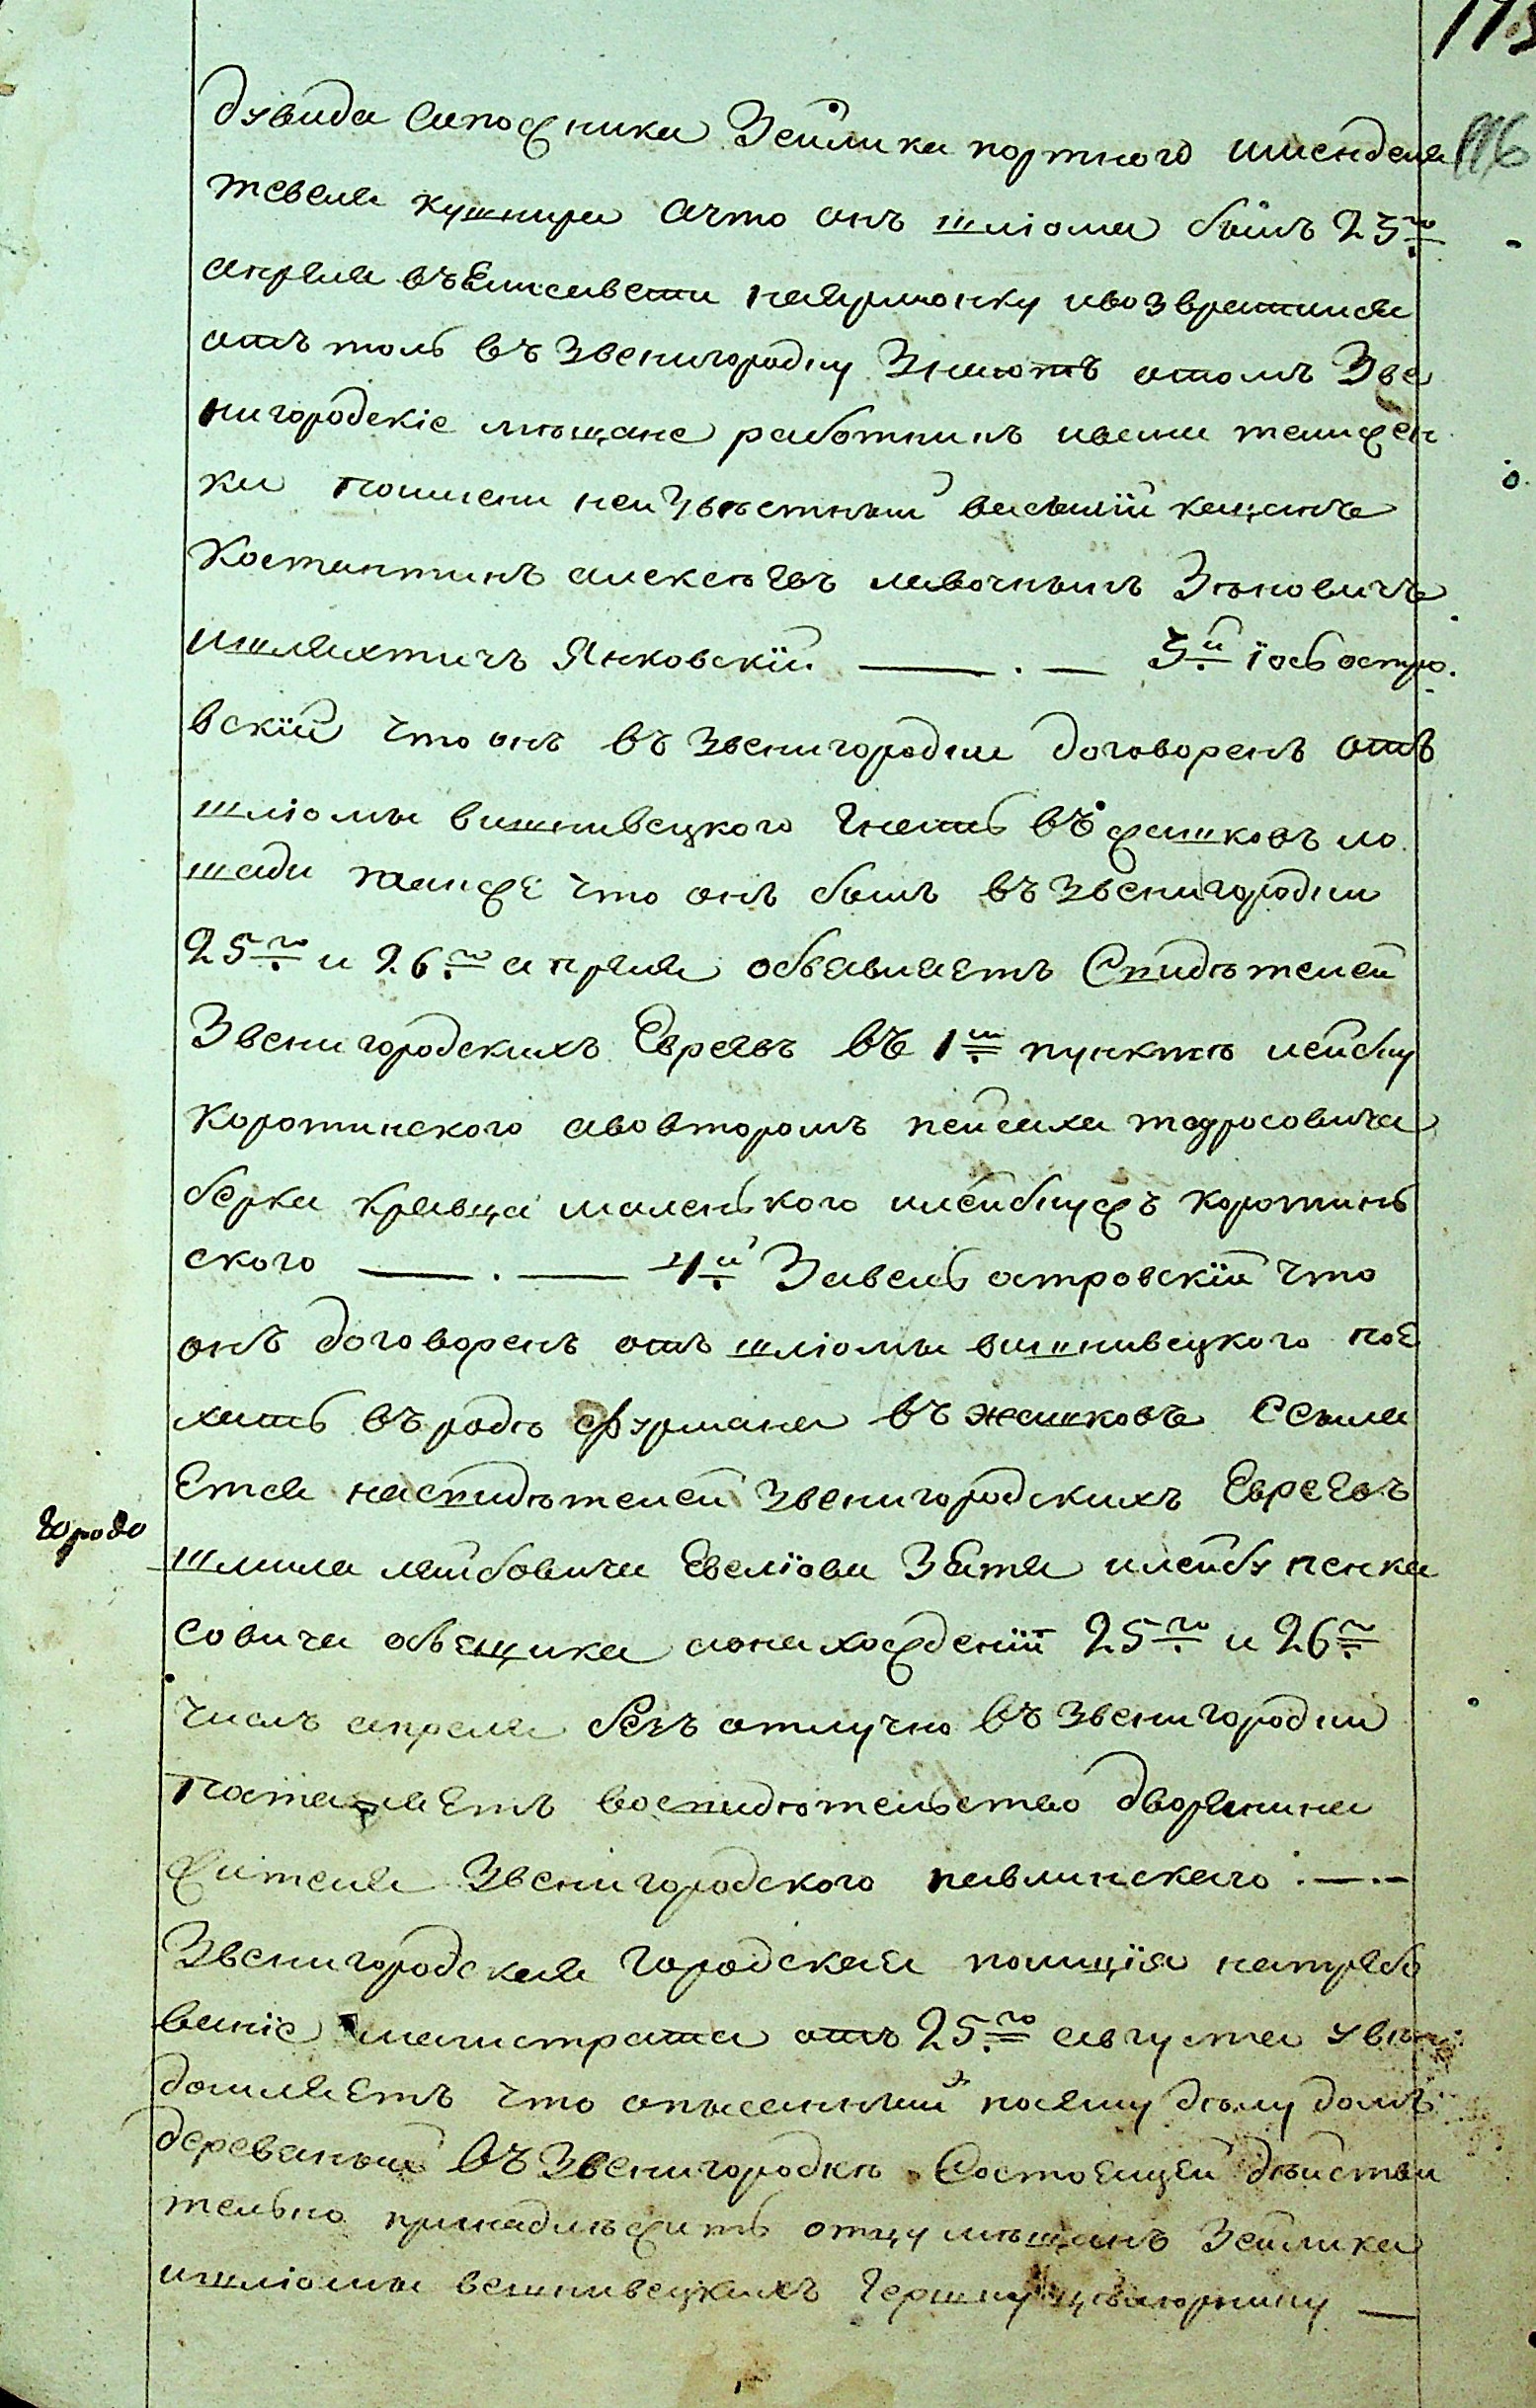 115
116
дувида Сапожника Зейлика портного шменделя
тевеля кушнира а что онъ шліома былъ 23го
апреля въ Елисавети на ярмонку и возвратился
отъ толь въ Звенигородку знаютъ о томъ Зве
нигородскіе мѣщане работникъ ивана
ки по имени неизвѣстный василій
Костантинъ алексѣевъ лавочникъ Зѣновичъ
и шляхтичъ Янковскій — . — 3й іось остро
вскій что онъ въ Звенигородки договоренъ отъ
шліомы вишнивецкого гнать въ жашковъ ло
шади также что онъ былъ въ Звенигородки
25го и 26го апреля объявляетъ Свидѣтелей
Звенигородскихъ Евреевъ въ 1м пунктѣ лейбу
Коротинского а во второмъ пейсаха тодросовича
берка Кравца маленького и лейбу жъ коротинь
ского — . — 4й Завель островскій что
онъ договоренъ отъ шліомы вишнивецкого пое
хать въ родѣ фурмана въ жашковъ ссыла
Ется на свидѣтелей звенигородскихъ Евреевъ
городо
шмила лейбовича Евеліова Зятя и лейбу пенка
совича объещика а о нахожденіи 25го и 26го
числъ апреля безъ отлучно въ звенигородки
поставляетъ во свидѣтельство дворянина
жителя Звенигородского павлинскаго . — . —
Звенигородская городская полиція на требо
ваніе магистрата отъ 25го августа увѣ
домляетъ что описанный по сему дѣлу домъ
деревяный въ Звенигородкѣ Состоящей дѣйстви
тельно принадлѣжитъ отцу мѣщанъ Зейлика
и шліомы вешнивецкихъ Гершку —